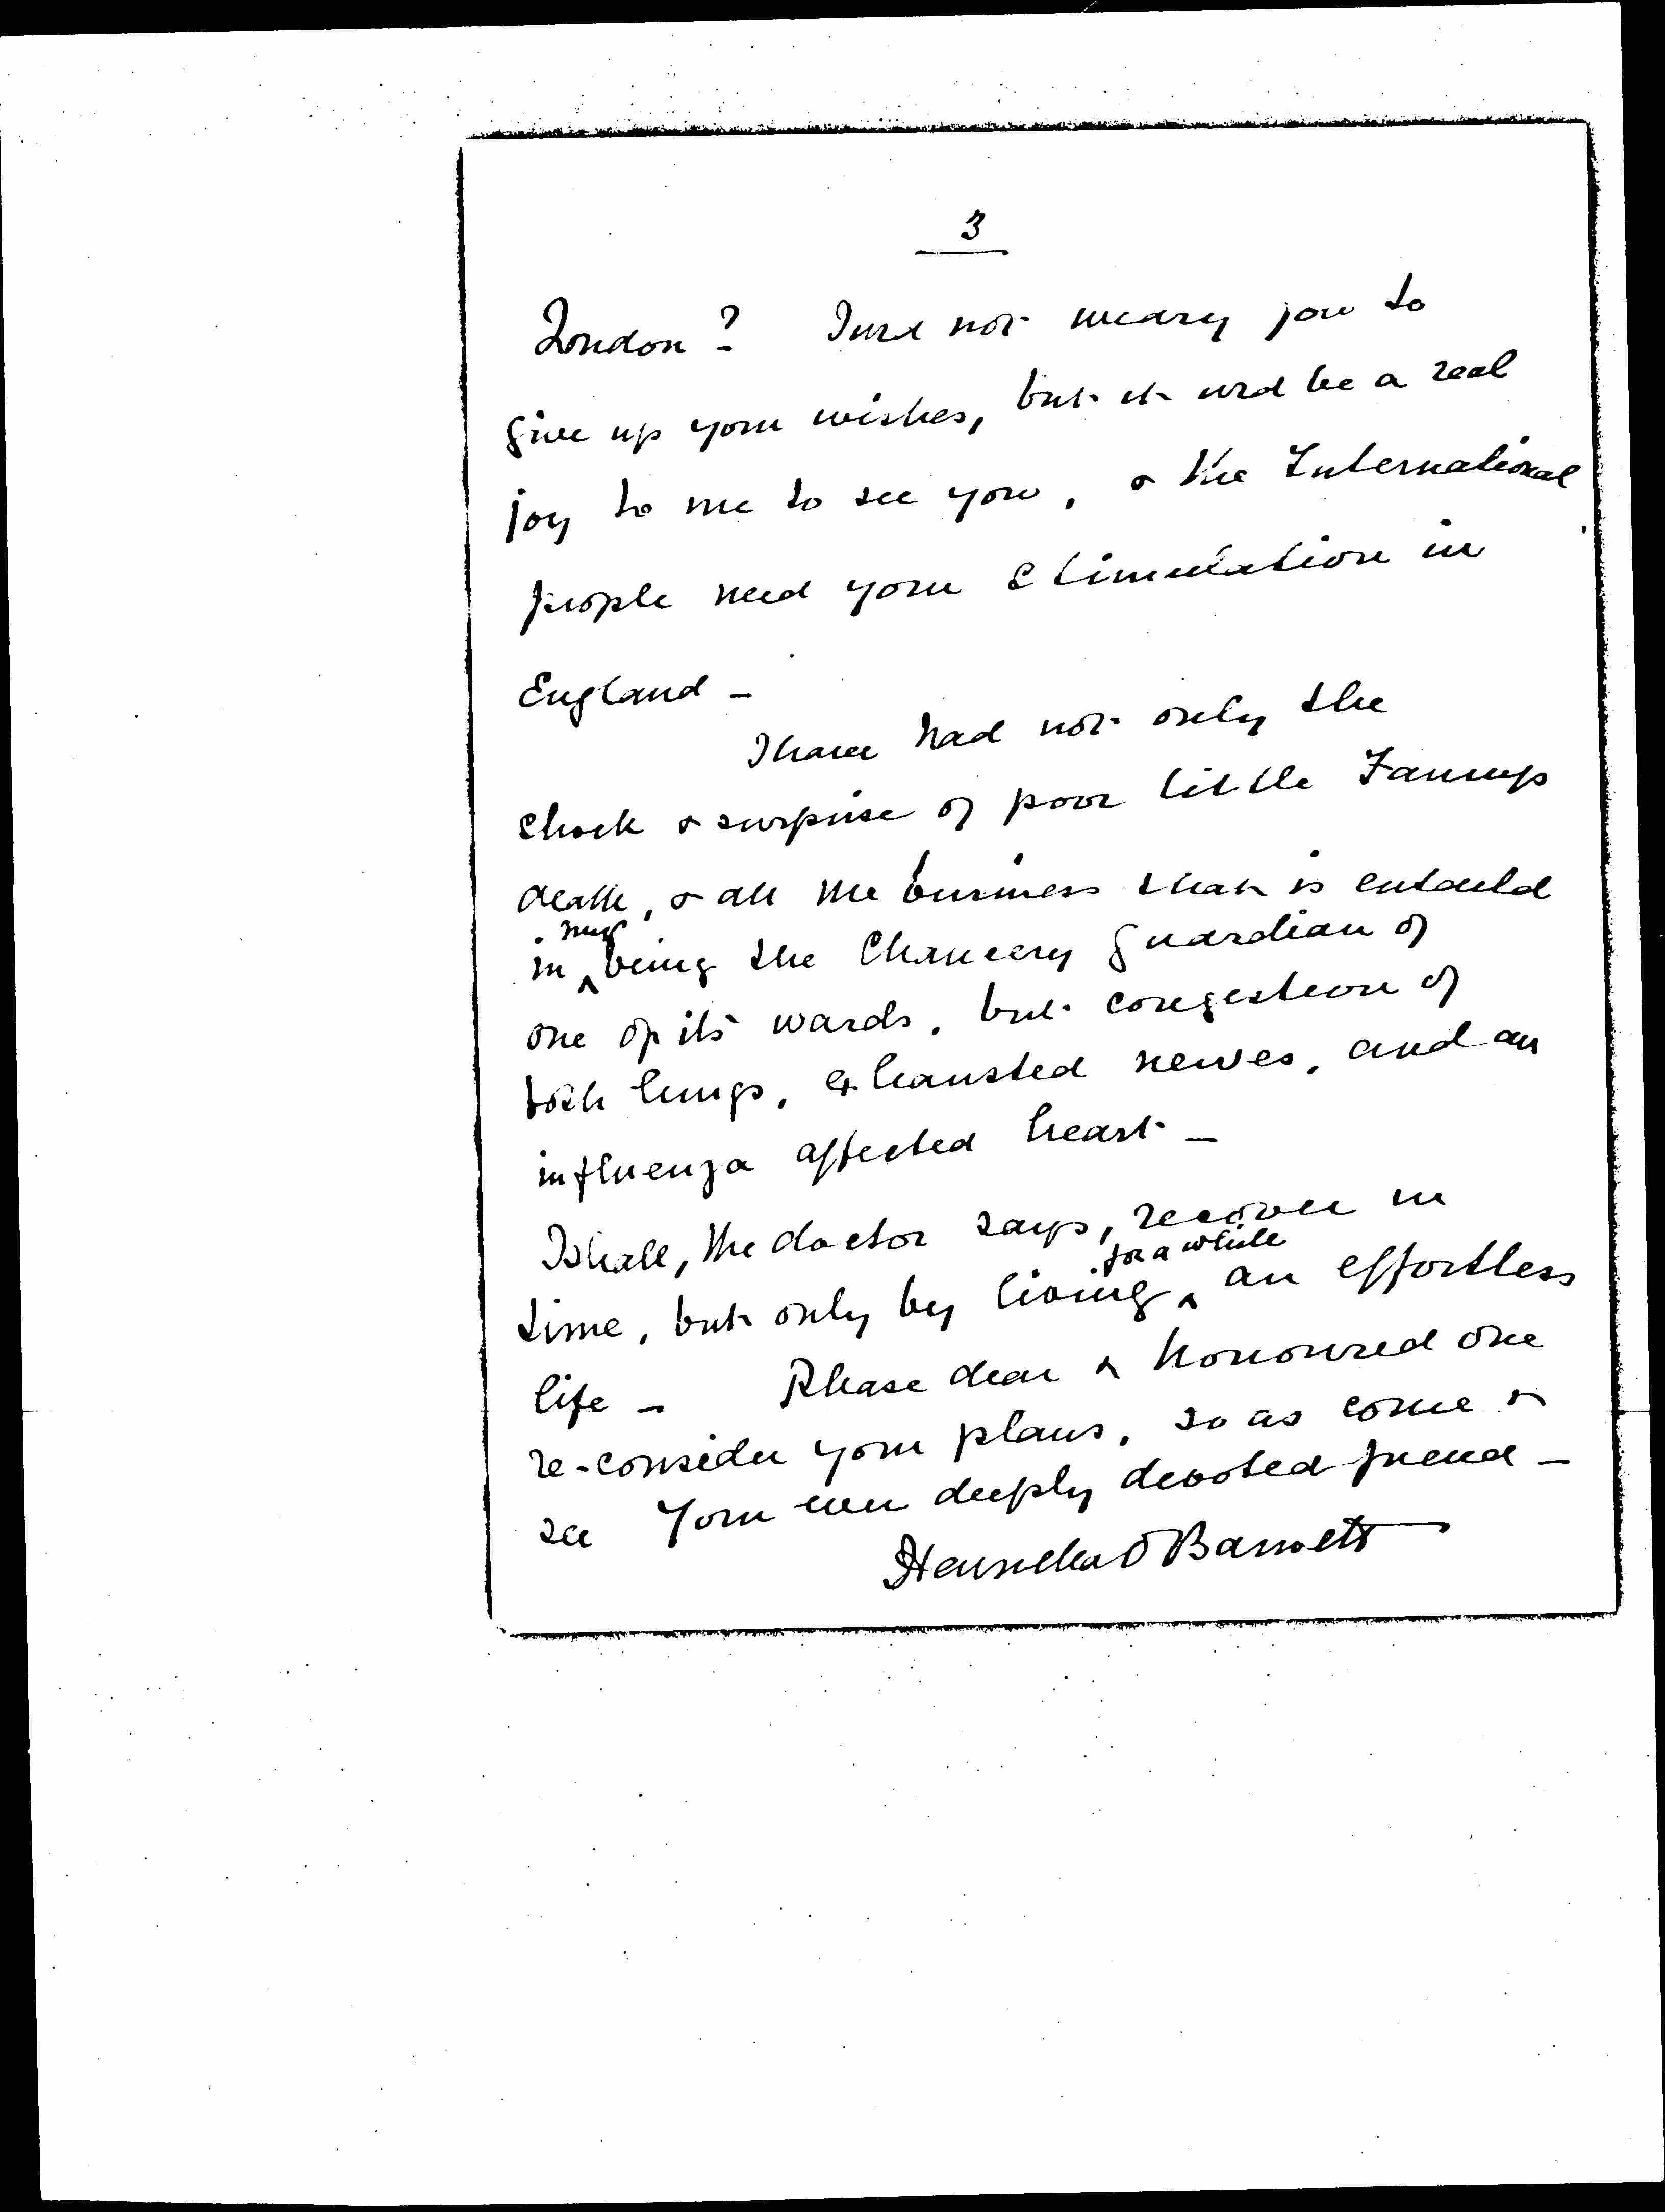 3
London? I wd not weary you to
give up your wishes, but it wd be a real
joy to me to see you, & the International
people need your stimulation in
England –
I have had not only the
shock & surprise of poor little Fanny's
death, & all the business that is entailed
in my being the Chancery guardian of
one of its wards, but congestion of
both lungs, exhausted nerves, and an
influenza affected heart –
I shall, the doctor says, recover in
time, but only by living for a while an effortless
life – Please dear & honoured one
re-consider your plans, so as come &
see Your ever deeply devoted friend –
Henrietta O Barnett